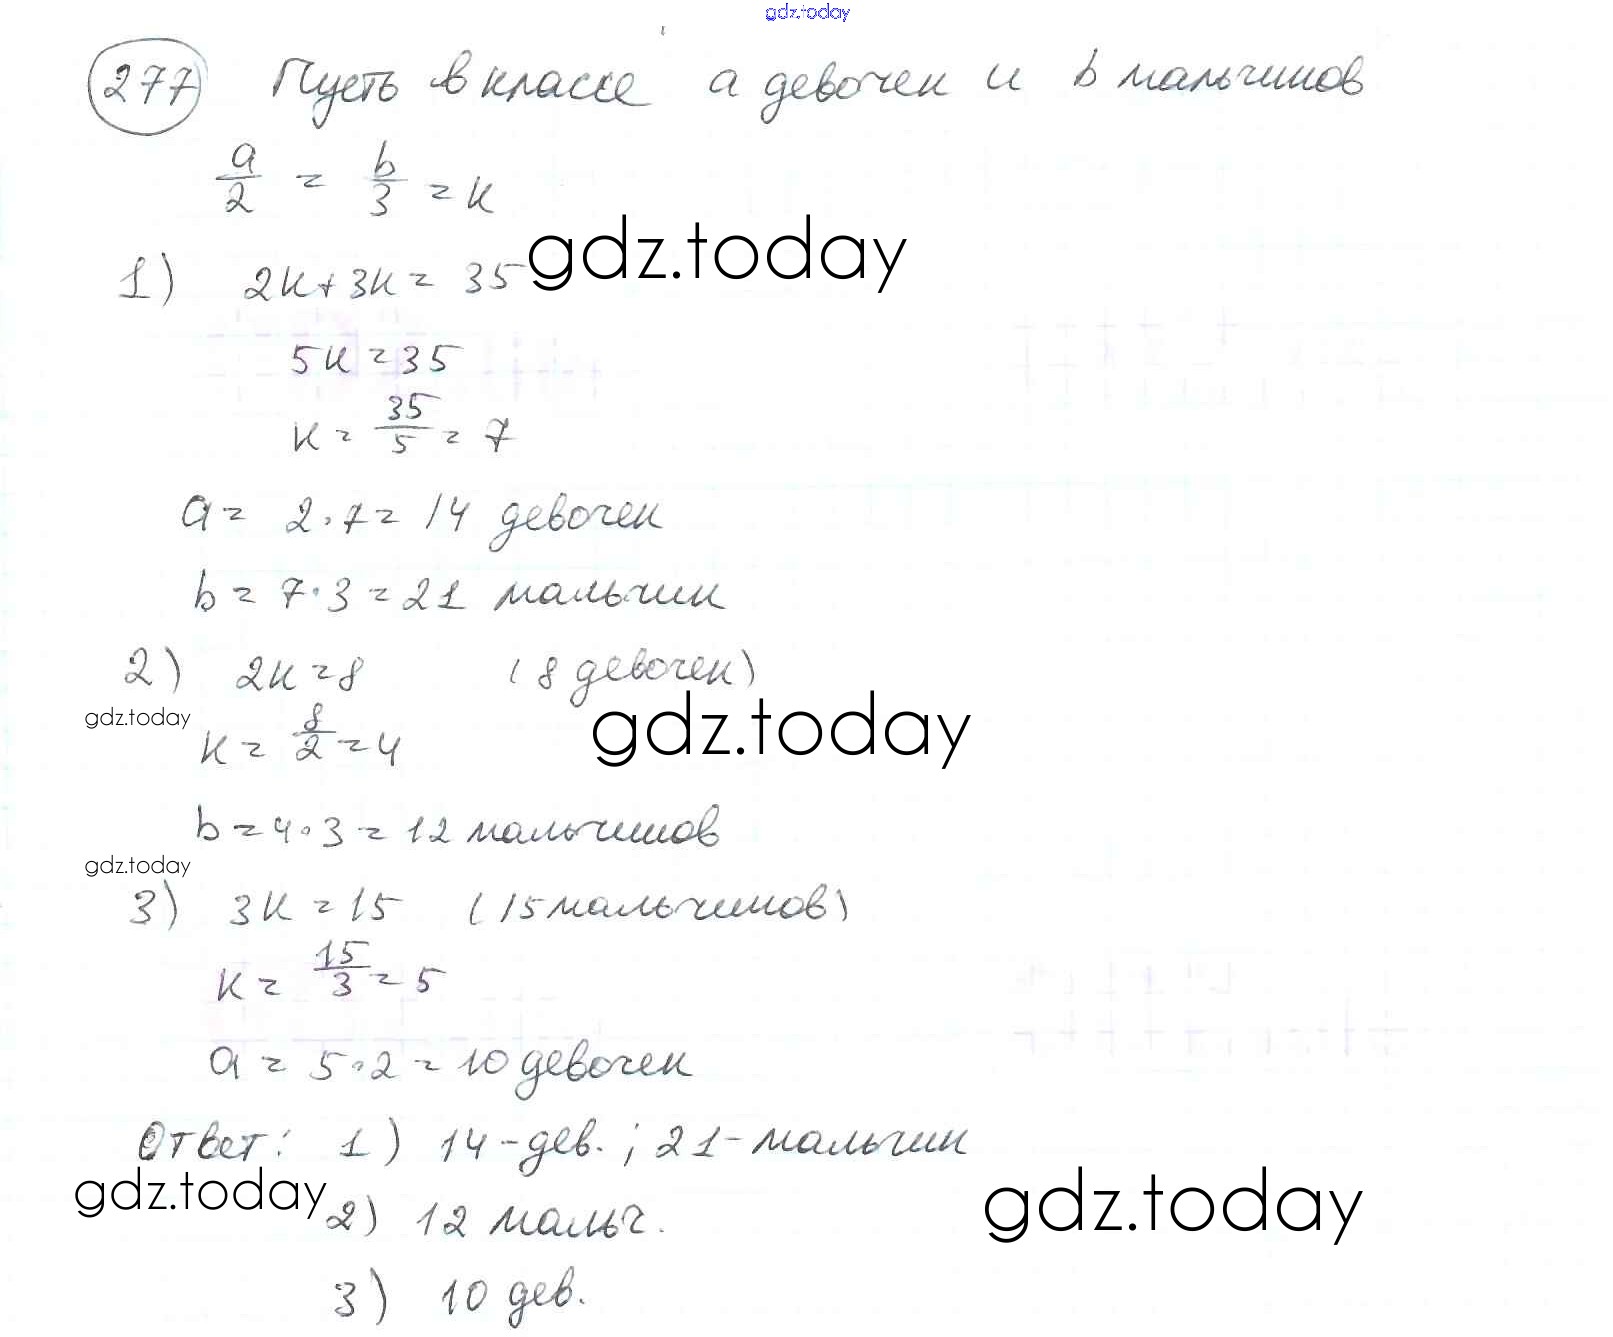 gdz.today
277 Пусть в классе a девочек и b мальчиков
a/2 = b/3 = к
1) 2к+3к = 35 gdz.today
5к = 35
к = 35/5 = 7
a = 2·7 = 14 девочек
b = 7·3 = 21 мальчик
2) 2к = 8 (8 девочек)
gdz.today
к = 8/2 = 4 gdz.today
b = 4·3 = 12 мальчиков
gdz.today
3) 3к = 15 (15 мальчиков)
к = 15/3 = 5
a = 5·2 = 10 девочек
Ответ: 1) 14-дев.; 21-мальчик
gdz.today 2) 12 мальч. gdz.today
3) 10 дев.